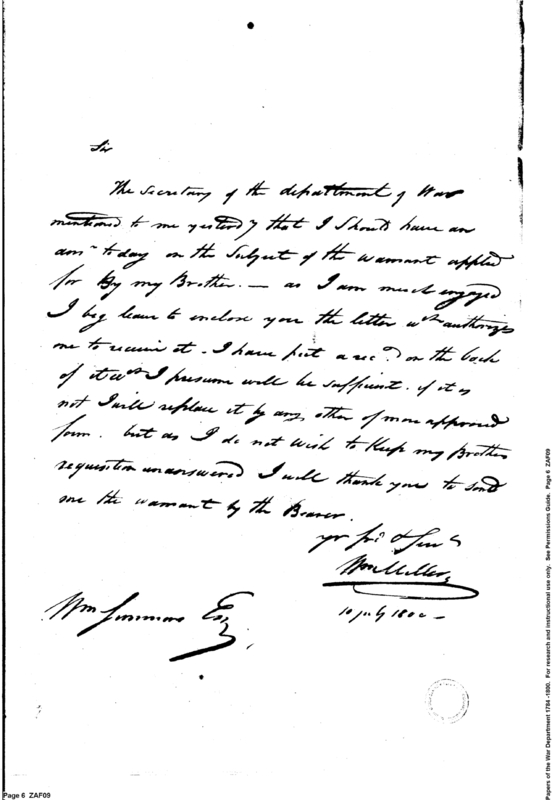 Sir
The Secretary of the department of War
mentioned to me yesterday that I should have an
ansr today on the Subject of the warrant applied
for By my Brother. — as I am much engaged
I beg leave to enclose you the letter wch authorizes
me to receive it. I have put a rect on the back
of it wch I presume will be sufficient. if it is
not I will replace it by any other of more approved
form. but as I do not wish to Keep my Brothers
requisition unanswered I will thank you to send
me the warrant by the Bearer.
yr frd & Servt
Wm Miller
10 July 1800 —
Wm Simmons Esq
Page 6 ZAF09
Papers of the War Department 1784 -1800. For research and instructional use only. See Permissions Guide. Page 6 ZAF09